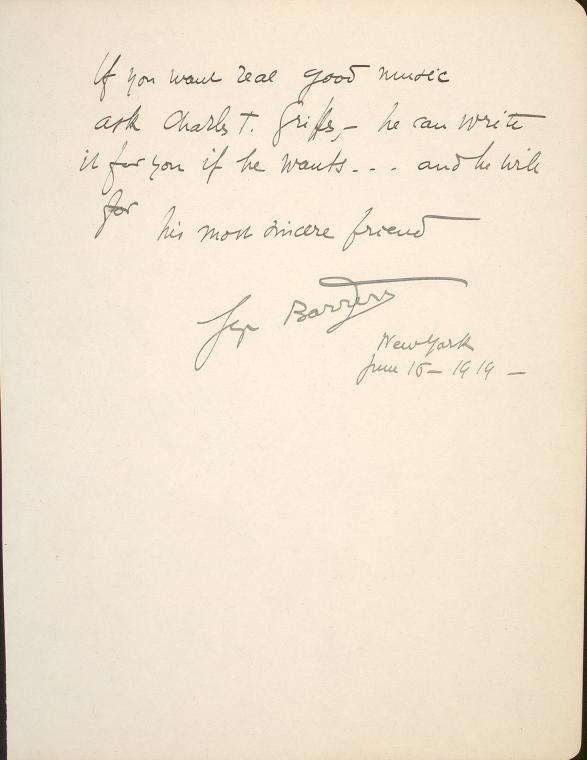 If you want real good music
ask Charles T. Griffes,- he can write
it for you if he wants... and he will
for his most sincere friend
Barrère
New York
June 15- 1919-